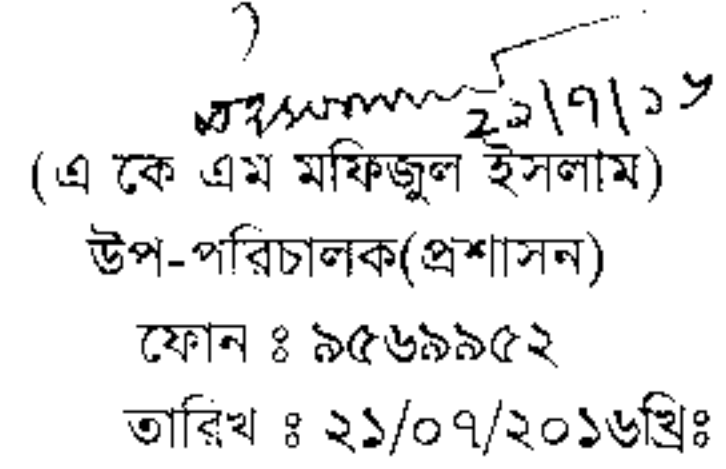 ২১/৭/১৬
(এ কে এম মফিজুল ইসলাম)
উপ-পরিচালক(প্রশাসন)
ফোন ঃ ৯৫৬৯৯৫২
তারিখ ঃ ২১/০৭/২০১৬খ্রিঃ